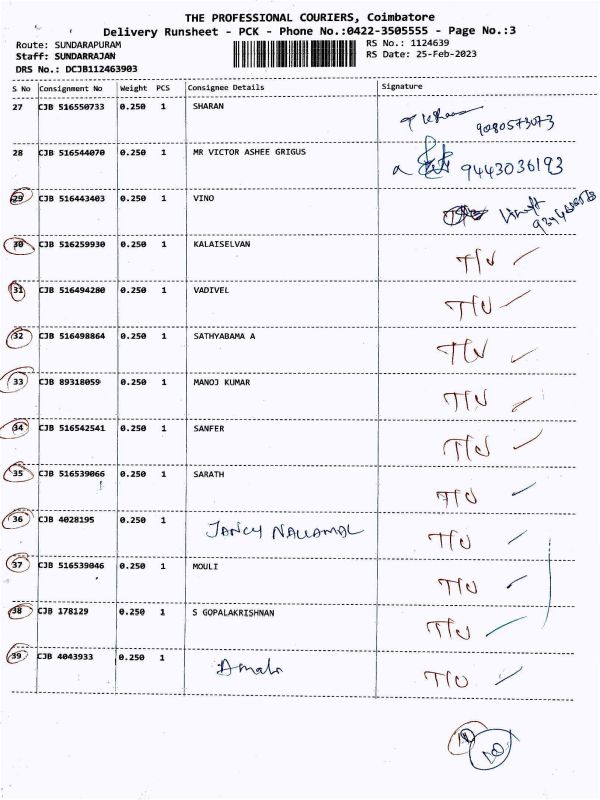 THE PROFESSIONAL COURIERS, Coimbatore
Delivery Runsheet - PCK - Phone No.:0422-3505555 - Page No.:3
Route: SUNDARAPURAM RS No.: 1124639
Staff: SUNDARRAJAN RS Date: 25-Feb-2023
DRS No.: DCJB112463903
S No Consignment No Weight PCS Consignee Details Signature
27 CJB 516550733 0.250 1 SHARAN
9080573073
28 CJB 516544070 0.250 1 MR VICTOR ASHEE GRIGUS 9443036193
29 CJB 516443403 0.250 1 VINO
30 CJB 516259930 0.250 1 KALAISELVAN T/N
31 CJB 516494280 0.250 1 VADIVEL T/N
32 CJB 516498864 0.250 1 SATHYABAMA A T/N
33 CJB 89318059 0.250 1 MANOJ KUMAR T/N
34 CJB 516542541 0.250 1 SANFER T/N
35 CJB 516539066 0.250 1 SARATH T/N
36 CJB 4028195 0.250 1 JANCY NALLAMAL T/N
37 CJB 516539046 0.250 1 MOULI T/N
38 CJB 178129 0.250 1 S GOPALAKRISHNAN T/N
39 CJB 4043933 0.250 1 Amala T/N